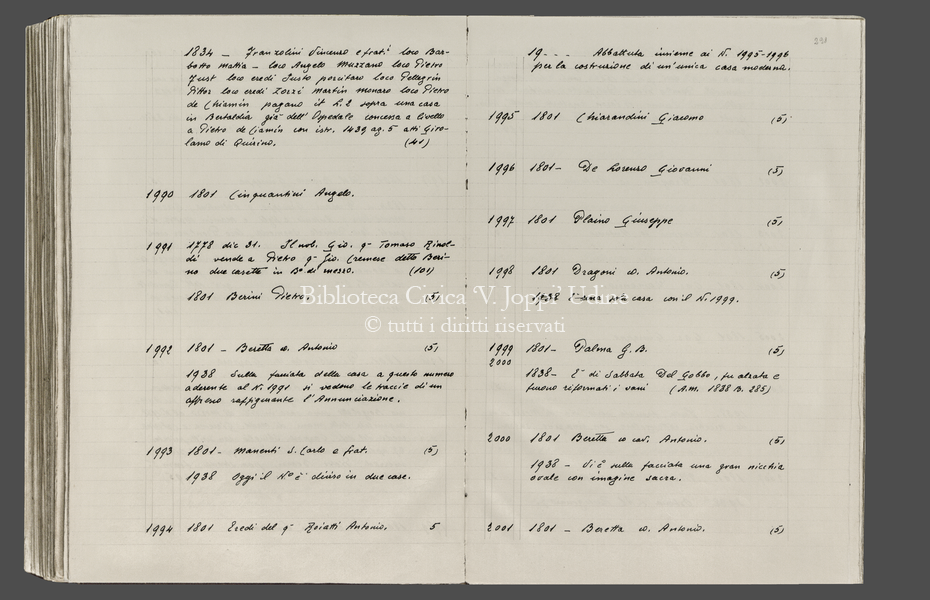 1834 — Franzolini Vincenzo e frat.i loco Bar-
botto Mattia — loco Angelo Muzzano loco Pietro
Just loco eredi Justo porcitaro loco Pellegrin
Pittor loco eredi Zorzi Martin monaro loco Pietro
de Chiamin pagano it £. 2 sopra una casa
in Bertaldia già dell'Ospedale concessa a livello
a Pietro de Ciamin con istr. 1439 ag. 5 atti Giro-
lamo di Quirino. (41)
1990 1801 Cinquantini Angelo.
1991 1778 dic 31. Il nob. Gio. q- Tomaso Rinol-
di vende a Pietro q- Gio. Cremese detto Beri-
no due casette in B° di mezzo. (101)
1801 Berini Pietro. (5)
1992 1801 — Beretta co. Antonio (5)
1938 Sulla facciata della casa a questo numero
aderente al N. 1991 si vedono le traccie di un
affresco raffigurante l'Annunciazione.
1993 1801 - Manenti S. Carlo e frat. (5)
1938 Oggi il N° è diviso in due case.
1994 1801 Eredi del q- Zoiatti Antonio. 5
291
19... Abbattuta insieme ai N. 1995-1996
per la costruzione di un'unica casa moderna.
1995 1801 Chiarandini Giacomo (5)
1996 1801 — De Lorenzo Giovanni (5)
1997 1801 Plaino Giuseppe (5)
1998 1801 Dragoni co. Antonio. (5)
1938 È una sola casa con il N. 1999.
Biblioteca Civica 'V. Joppi' Udine
© tutti i diritti riservati
1999 1801 — Dalma G. B. (5)
2000
1838 — È di Sabbata Del Gobbo, fu alzata e
furono riformati i vani (A.M. 1838 B. 285)
2000 1801 Beretta co cav. Antonio. (5)
1938 — Vi è sulla facciata una gran nicchia
ovale con imagine sacra.
2001 1801 — Beretta co. Antonio. (5)